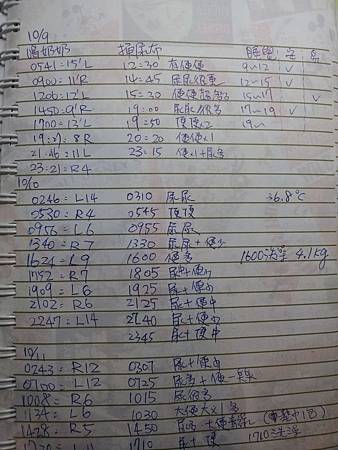 10/9
喝奶奶 換尿布 睡覺 安 鬧
0541=15'L 12:30 有便便 9~12 v
0900=11'R 14:45 尿尿很重 12~15 v
1200=17'L 15=30 15~17 v
1450=9'R 19:00 尿尿很多 17~19 v
1700=13'L 19:50 19~
19:27=8R 20=20 便便x1
21:46=11L 23:15 便x1+尿多
23:21=R4
10/10
0246=L14 0310 尿尿 36.8°C
0530=R4 0545
0956=L6 0955 尿尿
1340=R7 1330 尿尿+便少
1624=L9 1600 便多 1600洗澡 4.1kg
1752=R7 1805 尿+便
1909=L6 1925 尿+便
2102=R6 2125 尿+便中
2247=L14 2240 尿+便
2345 尿+便中
10/11
0243=R12 0307 尿+便
0700=L12 0725 尿多+便一點
1008=R6 1015 尿很多
1134=L6 1030 大便大x1多
1428=R5 1450
L11 1710 尿+便 1710洗澡